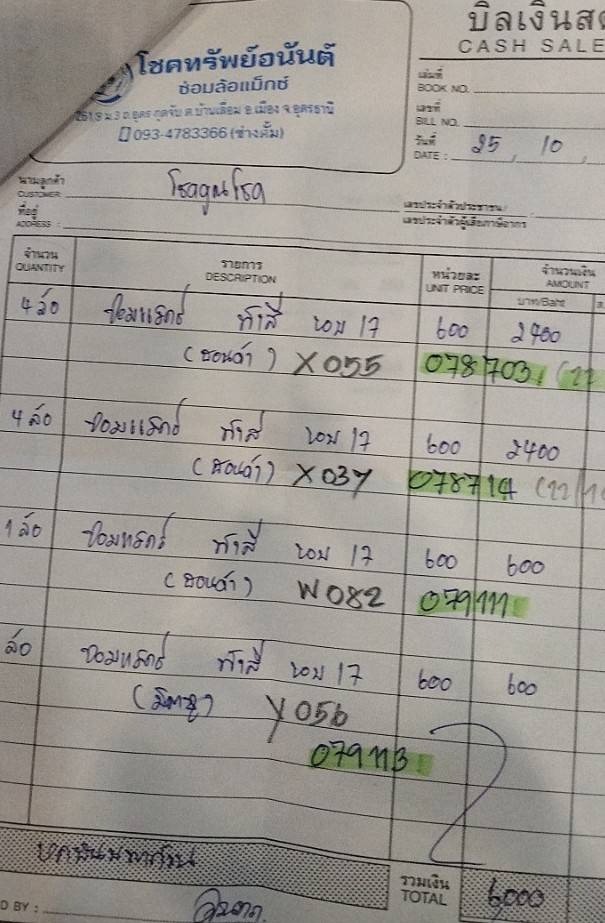 บิลเงินส
CASH SALE
โชคทรัพย์อนันต์
ซ่อมล้อแม็กซ์
ม.3 ถ.อุดร-กุดจับ ต.บ้านเลื่อม อ.เมือง จ.อุดรธานี
093-4783366 (ช่างตั้ม)
เล่มที่
BOOK NO.
เลขที่
BILL NO.
วันที่
DATE : 25 , 10 ,
นามลูกค้า
CUSTOMER
ที่อยู่
ADDRESS :
เลขประจำตัวประชาชน/
เลขประจำตัวผู้เสียภาษีอากร
จำนวน รายการ หน่วยละ จำนวนเงิน
QUANTITY DESCRIPTION UNIT PRICE AMOUNT
บาท/Baht ส
4 ล้อ ซ่อมแมกซ์ ทำสี ขอบ 17 600 2400
(ฮอนด้า) X055 078703 (22
4 ล้อ ซ่อมแมกซ์ ทำสี ขอบ 17 600 2400
(ฮอนด้า) X037 078714 (22/10
1 ล้อ ซ่อมแมกซ์ ทำสี ขอบ 17 600 600
(ฮอนด้า) W082 079111
ล้อ ซ่อมแมกซ์ ทำสี ขอบ 17 600 600
Y056
079113
รวมเงิน
TOTAL 6,000
D BY :